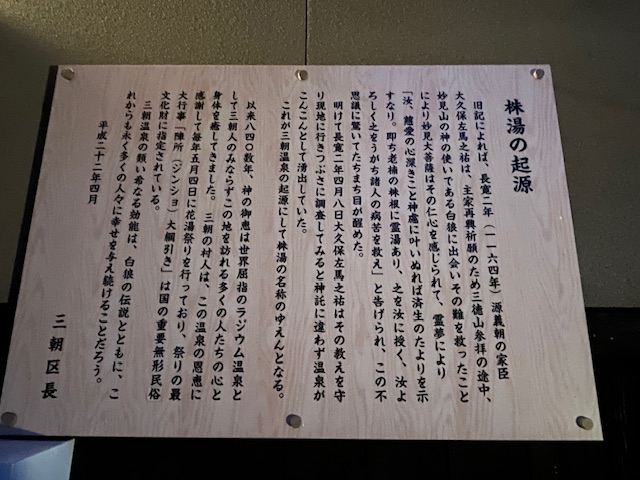 株湯の起源
旧記によれば、長寛二年(一一六四年)源義朝の家臣
大久保左馬之祐は、主家再興祈願のため三徳山参拝の途中、
妙見山の神の使いである白狼に出会いその難を救ったこと
により妙見大菩薩はその仁心を感じられて、霊夢により
「汝、慈愛の心深きこと神慮に叶いぬれば済生のたよりを示
すなり。即ち老楠の株根に霊湯あり、之を汝に授く、汝よ
ろしく之をうがち諸人の病苦を救え」と告げられ、この不
思議に驚いてたちまち目が醒めた。
明けて長寛二年四月八日大久保左馬之祐はその教えを守
り現地に行きつぶさに調査してみると神託に違わず温泉が
こんこんとして湧出していた。
これが三朝温泉の起源にして株湯の名称のゆえんとなる。
以来八四〇数年、神の御恵は世界屈指のラジウム温泉と
して三朝人のみならずこの地を訪れる多くの人たちの心と
身体を癒してきました。三朝の村人は、この温泉の恩恵に
感謝して毎年五月四日に花湯祭りを行っており、祭りの最
大行事「陣所(ジンショ)大綱引き」は国の重要無形民俗
文化財に指定されている。
三朝温泉の類い希なる効能は、白狼の伝説とともに、こ
れからも永く多くの人々に幸せを与え続けることだろう。
平成二十二年四月
三朝区長